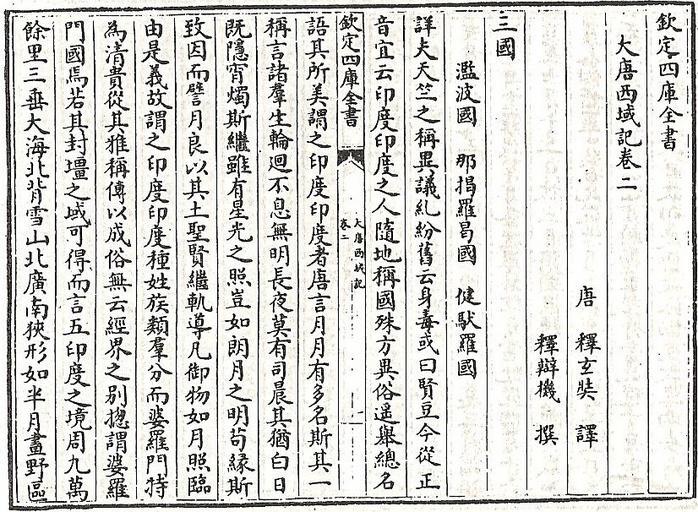 欽定四庫全書
大唐西域記卷二
唐 釋玄奘 譯
釋辯機 撰
三國
濫波國 那揭羅曷國 健馱羅國
詳夫天竺之稱異議糺紛舊云身毒或曰賢豆今從正
音宜云印度印度之人隨地稱國殊方異俗遥舉總名
欽定四庫全書
大唐西域記
卷二
語其所美謂之印度印度者唐言月月有多名斯其一
稱言諸羣生輪迴不息無明長夜莫有司晨其猶白日
既隱宵燭斯繼雖有星光之照豈如朗月之明茍緣斯
致因而譬月良以其土聖賢繼軌導凡御物如月照臨
由是義故謂之印度印度種姓族類羣分而婆羅門特
為清貴從其雅稱傳以成俗無云經界之別揔謂婆羅
門國焉若其封壃之域可得而言五印度之境周九萬
餘里三垂大海北背雪山北廣南狹形如半月畫野區